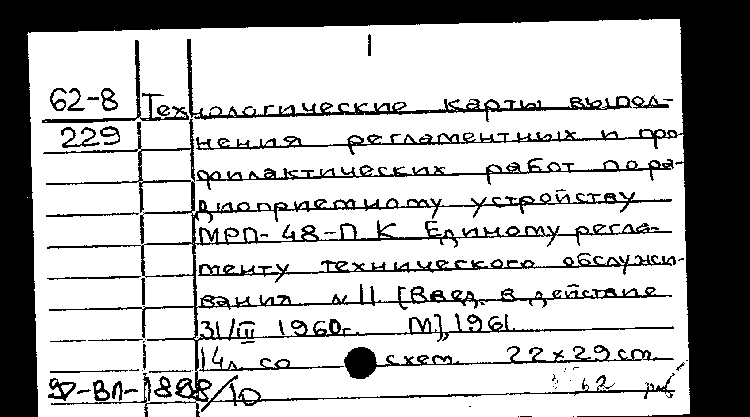 62-8 Технологические карты выпол-
229 нения регламентных и про-
филактических работ по ра-
диоприемному устройству
МРП-48-П К Единому регла-
менту технического обслужи-
вания №11 [Введ. в действие
31/III 1960г. М], 1961.
14л. со схем. 22×29cm.
Ф-ВЛ-1898/10 62